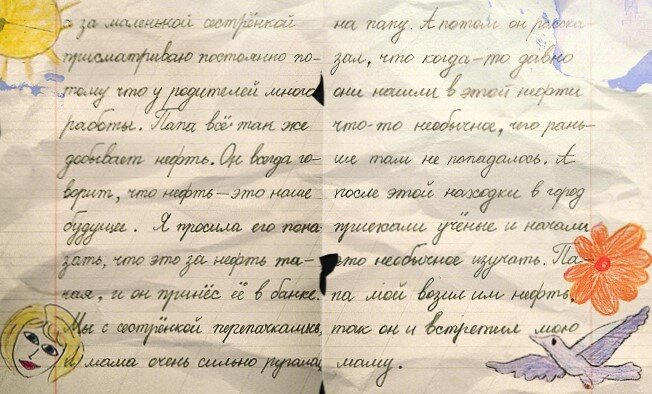 а за маленькой сестрёнкой
присматриваю постоянно по-
тому что у родителей много
работы. Папа всё так же
добывает нефть. Он всегда го-
ворит, что нефть – это наше
будущее. Я просила его пока-
зать, что это за нефть та-
кая, и он принёс её в банке.
Мы с сестрёнкой перепачкались,
и мама очень сильно ругалась
на папу. А потом он расска-
зал, что когда-то давно
они нашли в этой нефти
что-то необычное, чего рань-
ше там не попадалось. А
после этой находки в город
приехали учёные и начали
это необычное изучать. Па-
па мой возил им нефть,
так он и встретил мою
маму.